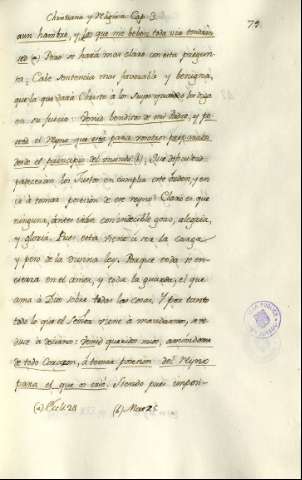 Christiana y Religiosa Cap. 3.
75
aun hambre, y los que me beben toda via tendran
sed (a) Pero se hará mas claro con esta pregun-
ta: Cabe sentencia mas favorable y benigna,
que la que dará Christo á los suyos quando les diga
en su juicio: Venid benditos de mi Padre, y po-
seed el Reyno que está para vosotros preparado
desde el principio del mundo (b); Que dificultad
pareceran los Justos en cumplir este orden, y en
ir á tomar posesion de este reyno? Claro es que
ninguna, antes irán con indecible gozo, alegria,
y gloria. Pues esta viene á ser la carga
y peso de la divina ley. Porque toda se en-
cierra en el amor, y toda la guarda, el que
ama á Dios sobre todas las cosas. Y por tanto
todo lo que el Señor viene á mandarnos, se re-
duce á decirnos: Venid queridos mios, amandome
de todo Corazon, á tomar posesion del Reyno
para el que os crié. Siendo pues impor-
(a) Eccli 24 (b) Mat 25